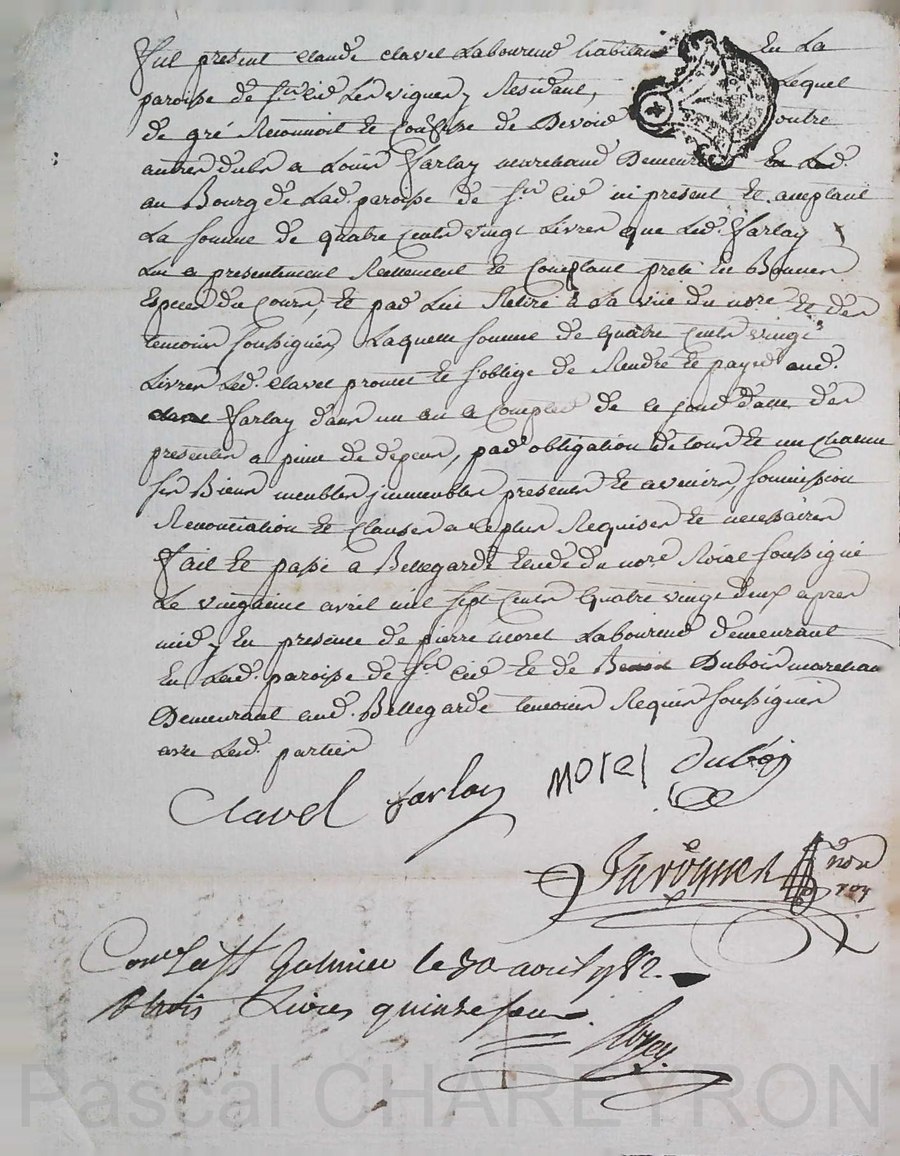 Fut present Claude Clavel Laboureur habitant En La
paroisse de St Cir Les vignes y Residant, Lequel
de gré Reconnoit et Confesse de Devoir outre
autres dubs a Louis Farlay marchand Demeurant
au Bourg de Lad. paroisse de St Cir ici present et aceptant
La somme de quatre Cents vingt Livres que Led. Farlay
Lui a presentement Reellement et Comptant preté En Bonnes
Especes du Cours, et par Lui Retiré a La vüe du nore Et des
temoins soussignés Laquelle somme de quatre Cents vingt
Livres Led. Clavel promet et s'oblige de Rendre et payer aud.
Farlay dans un an a Compter de ce jour datte des
presentes a peine de depens, par obligation de tous et un Chacun
ses Biens meubles immeubles presents et avenirs, soumission
Renonciation et Clauses a ce plus Requises et necessaires
Fait et passé a Bellegarde Etude du nore Roial soussigné
Le vingt avril mil sept Cents quatre vingt deux apres
midy En presence de pierre morel Laboureur demeurant
En Lad. paroisse de St Cir et de Dubois marchand
Demeurant aud. Bellegarde temoins Requis soussignés
avec Lesd. parties
Clavel farlay morel Dubois
nore
roy
Conlé a St Galmier le 30 avril 1782.
R trois Livres quinze sous.
Pascal CHAREYRON